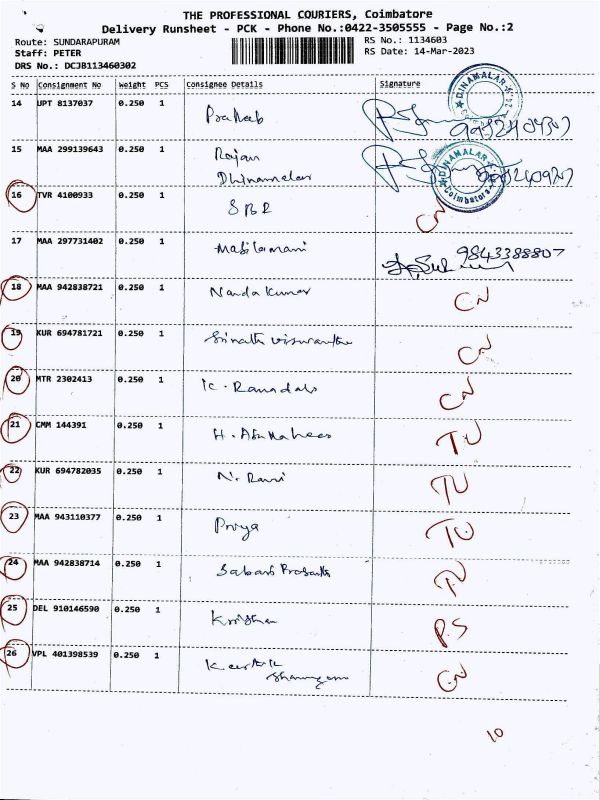 THE PROFESSIONAL COURIERS, Coimbatore
Delivery Runsheet - PCK - Phone No.:0422-3505555 - Page No.:2
Route: SUNDARAPURAM
RS No.: 1134603
Staff: PETER
RS Date: 14-Mar-2023
DRS No.: DCJB113460302
S No Consignment No Weight PCS Consignee Details Signature
14 UPT 8137037 0.250 1 Prahab
DINAMALAR
15 MAA 299139643 0.250 1 Rajan
Dhinamalar
DINAMALAR
Coimbatore
16 TVR 4100933 0.250 1 SBR CN
17 MAA 297731402 0.250 1 Masilamani 9843388807
18 MAA 942838721 0.250 1 Nanda Kumar CN
19 KUR 694781721 0.250 1 CN
20 MTR 2302413 0.250 1 CN
21 CMM 144391 0.250 1 TU
22 KUR 694782035 0.250 1 N. Rani TU
23 MAA 943110377 0.250 1 Priya TU
24 MAA 942838714 0.250 1 TU
25 DEL 910146590 0.250 1 Krishna P.S
26 VPL 401398539 0.250 1 CN
10